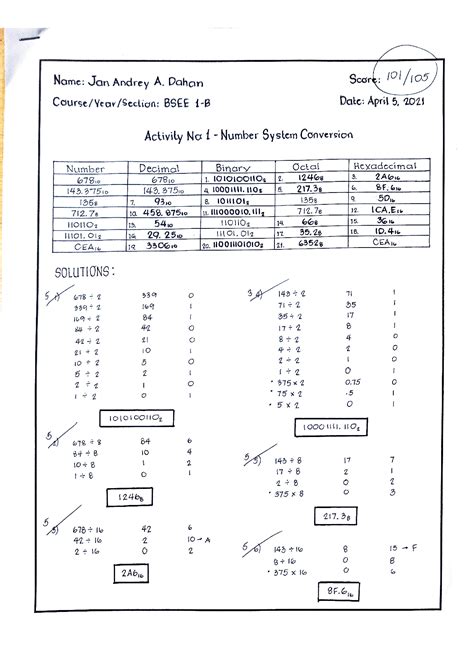 Name: Jan Andrey A. Dahan
Score: 101/105
Course/Year/Section: BSEE 1-B
Date: April 5, 2021
Activity No. 1 - Number System Conversion
Number Decimal Binary Octal Hexadecimal
678₁₀ 678₁₀ 1. 1010100110₂ 2. 1246₈ 3. 2A6₁₆
143.375₁₀ 143.375₁₀ 4. 10001111.110₂ 5. 217.3₈ 6. 8F.6₁₆
135₈ 7. 93₁₀ 8. 1011101₂ 135₈ 9. 5D₁₆
712.7₈ 10. 458.875₁₀ 11. 111000010.111₂ 712.7₈ 12. 1CA.E₁₆
110110₂ 13. 54₁₀ 110110₂ 14. 66₈ 15. 36₁₆
11101.01₂ 16. 29.25₁₀ 11101.01₂ 17. 35.2₈ 18. 1D.4₁₆
CEA₁₆ 19. 3306₁₀ 20. 110011101010₂ 21. 6352₈ CEA₁₆
SOLUTIONS:
5 1) 678 ÷ 2 339 0
339 ÷ 2 169 1
169 ÷ 2 84 1
84 ÷ 2 42 0
42 ÷ 2 21 0
21 ÷ 2 10 1
10 ÷ 2 5 0
5 ÷ 2 2 1
2 ÷ 2 1 0
1 ÷ 2 0 1
1010100110₂
5 2) 678 ÷ 8 84 6
84 ÷ 8 10 4
10 ÷ 8 1 2
1 ÷ 8 0 1
1246₈
5 3) 678 ÷ 16 42 6
42 ÷ 16 2 10 → A
2 ÷ 16 0 2
2A6₁₆
3 4) 143 ÷ 2 71 1
71 ÷ 2 35 1
35 ÷ 2 17 1
17 ÷ 2 8 1
8 ÷ 2 4 0
4 ÷ 2 2 0
2 ÷ 2 1 0
1 ÷ 2 0 1
• 375 x 2 0.75 0
• 75 x 2 .5 1
• 5 x 2 0 1
10001111.110₂
5 5) 143 ÷ 8 17 7
17 ÷ 8 2 1
2 ÷ 8 0 2
• 375 x 8 0 3
217.3₈
5 6) 143 ÷ 16 8 15 → F
8 ÷ 16 0 8
• 375 x 16 0 6
8F.6₁₆